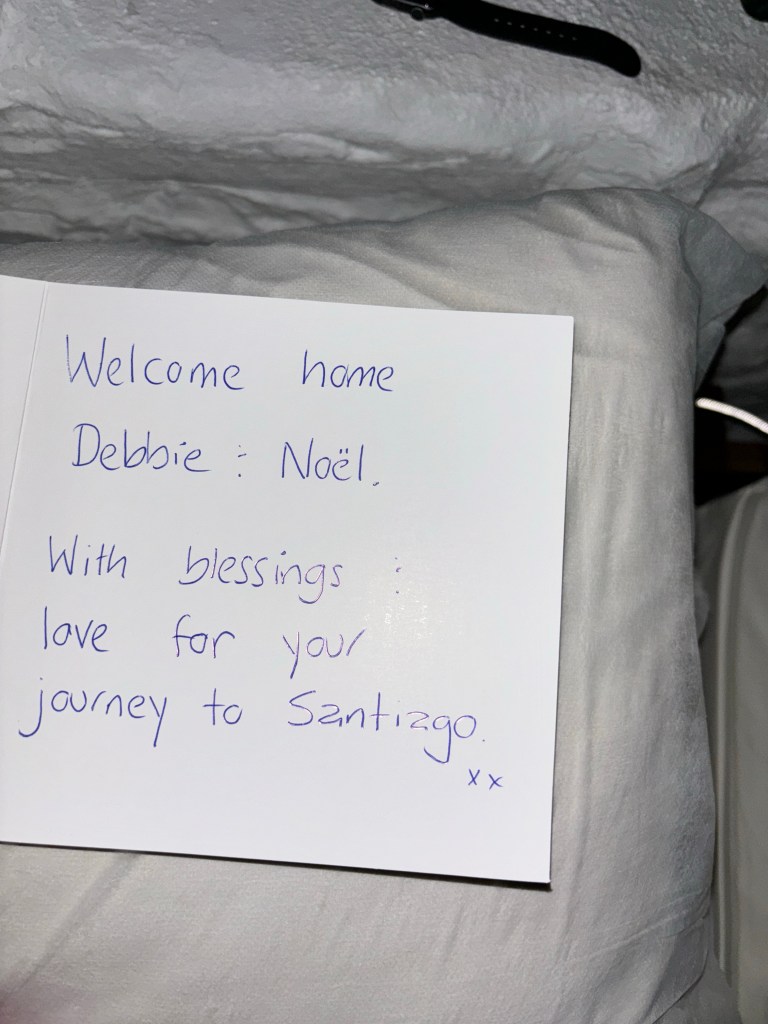 Welcome home
Debbie : Noël.
With blessings :
love for your
journey to Santiago.
xx